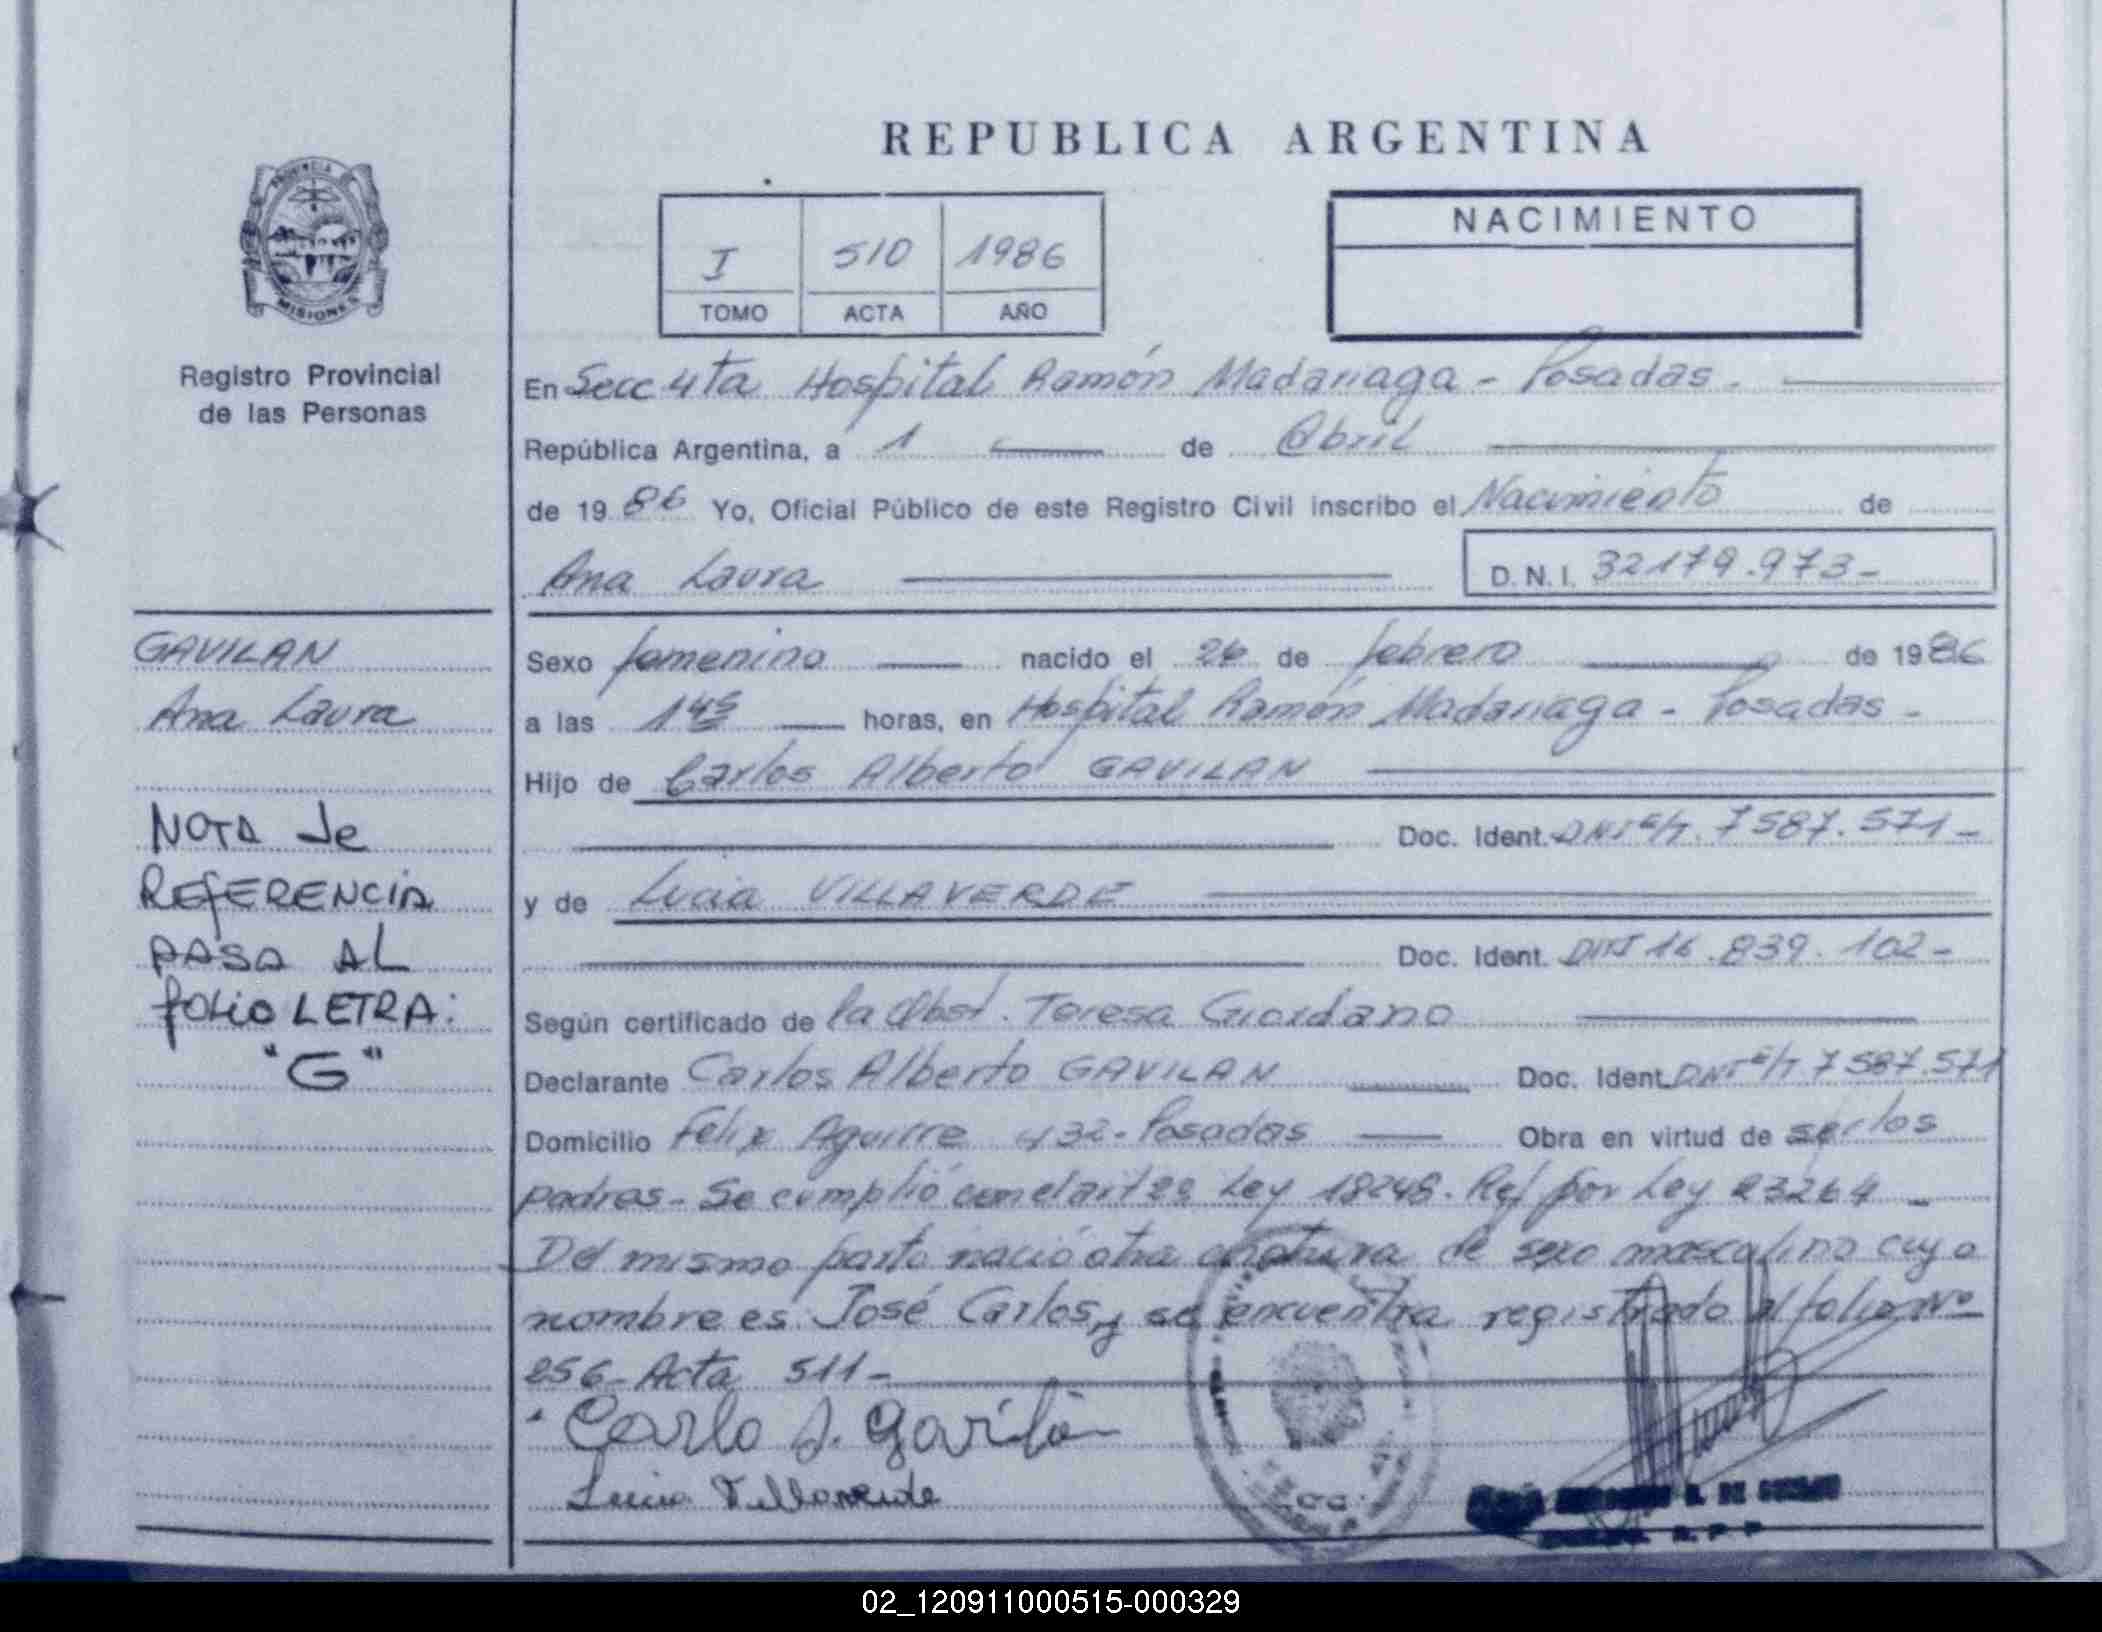 REPUBLICA ARGENTINA
PROVINCIA
MISIONES
Registro Provincial
de las Personas
I 510 1986
TOMO ACTA AÑO
NACIMIENTO
En Secc 4ta Hospital Ramón Madariaga - Posadas.
República Argentina, a 1 de Abril
de 1986 Yo, Oficial Público de este Registro Civil inscribo el Nacimiento de
Ana Laura D.N.I. 32179.973-
GAVILAN
Ana Laura
NOTA de
REFERENCIA
PASA AL
folio LETRA:
"G"
Sexo femenino nacido el 26 de febrero de 1986
a las 1 45 horas, en Hospital Ramón Madariaga - Posadas -
Hijo de Carlos Alberto GAVILAN
Doc. Ident. DNI E/T. 7587.571-
y de Lucia VILLAVERDE
Doc. Ident. DNI 16.839.102-
Según certificado de la Obst. Teresa Giordano
Declarante Carlos Alberto GAVILAN Doc. Ident. DNI E/T 7587.571
Domicilio Felix Aguirre 432-Posadas Obra en virtud de ser los
padres - Se cumplió con el art 22 Ley 18248. Ref por Ley 23264 -
Del mismo parto nació otra criatura de sexo masculino cuyo
nombre es José Carlos, y se encuentra registrado al folio Nº
256- Acta 511-
Carlo A. Gavilán
Lucia Villaverde
02_120911000515-000329